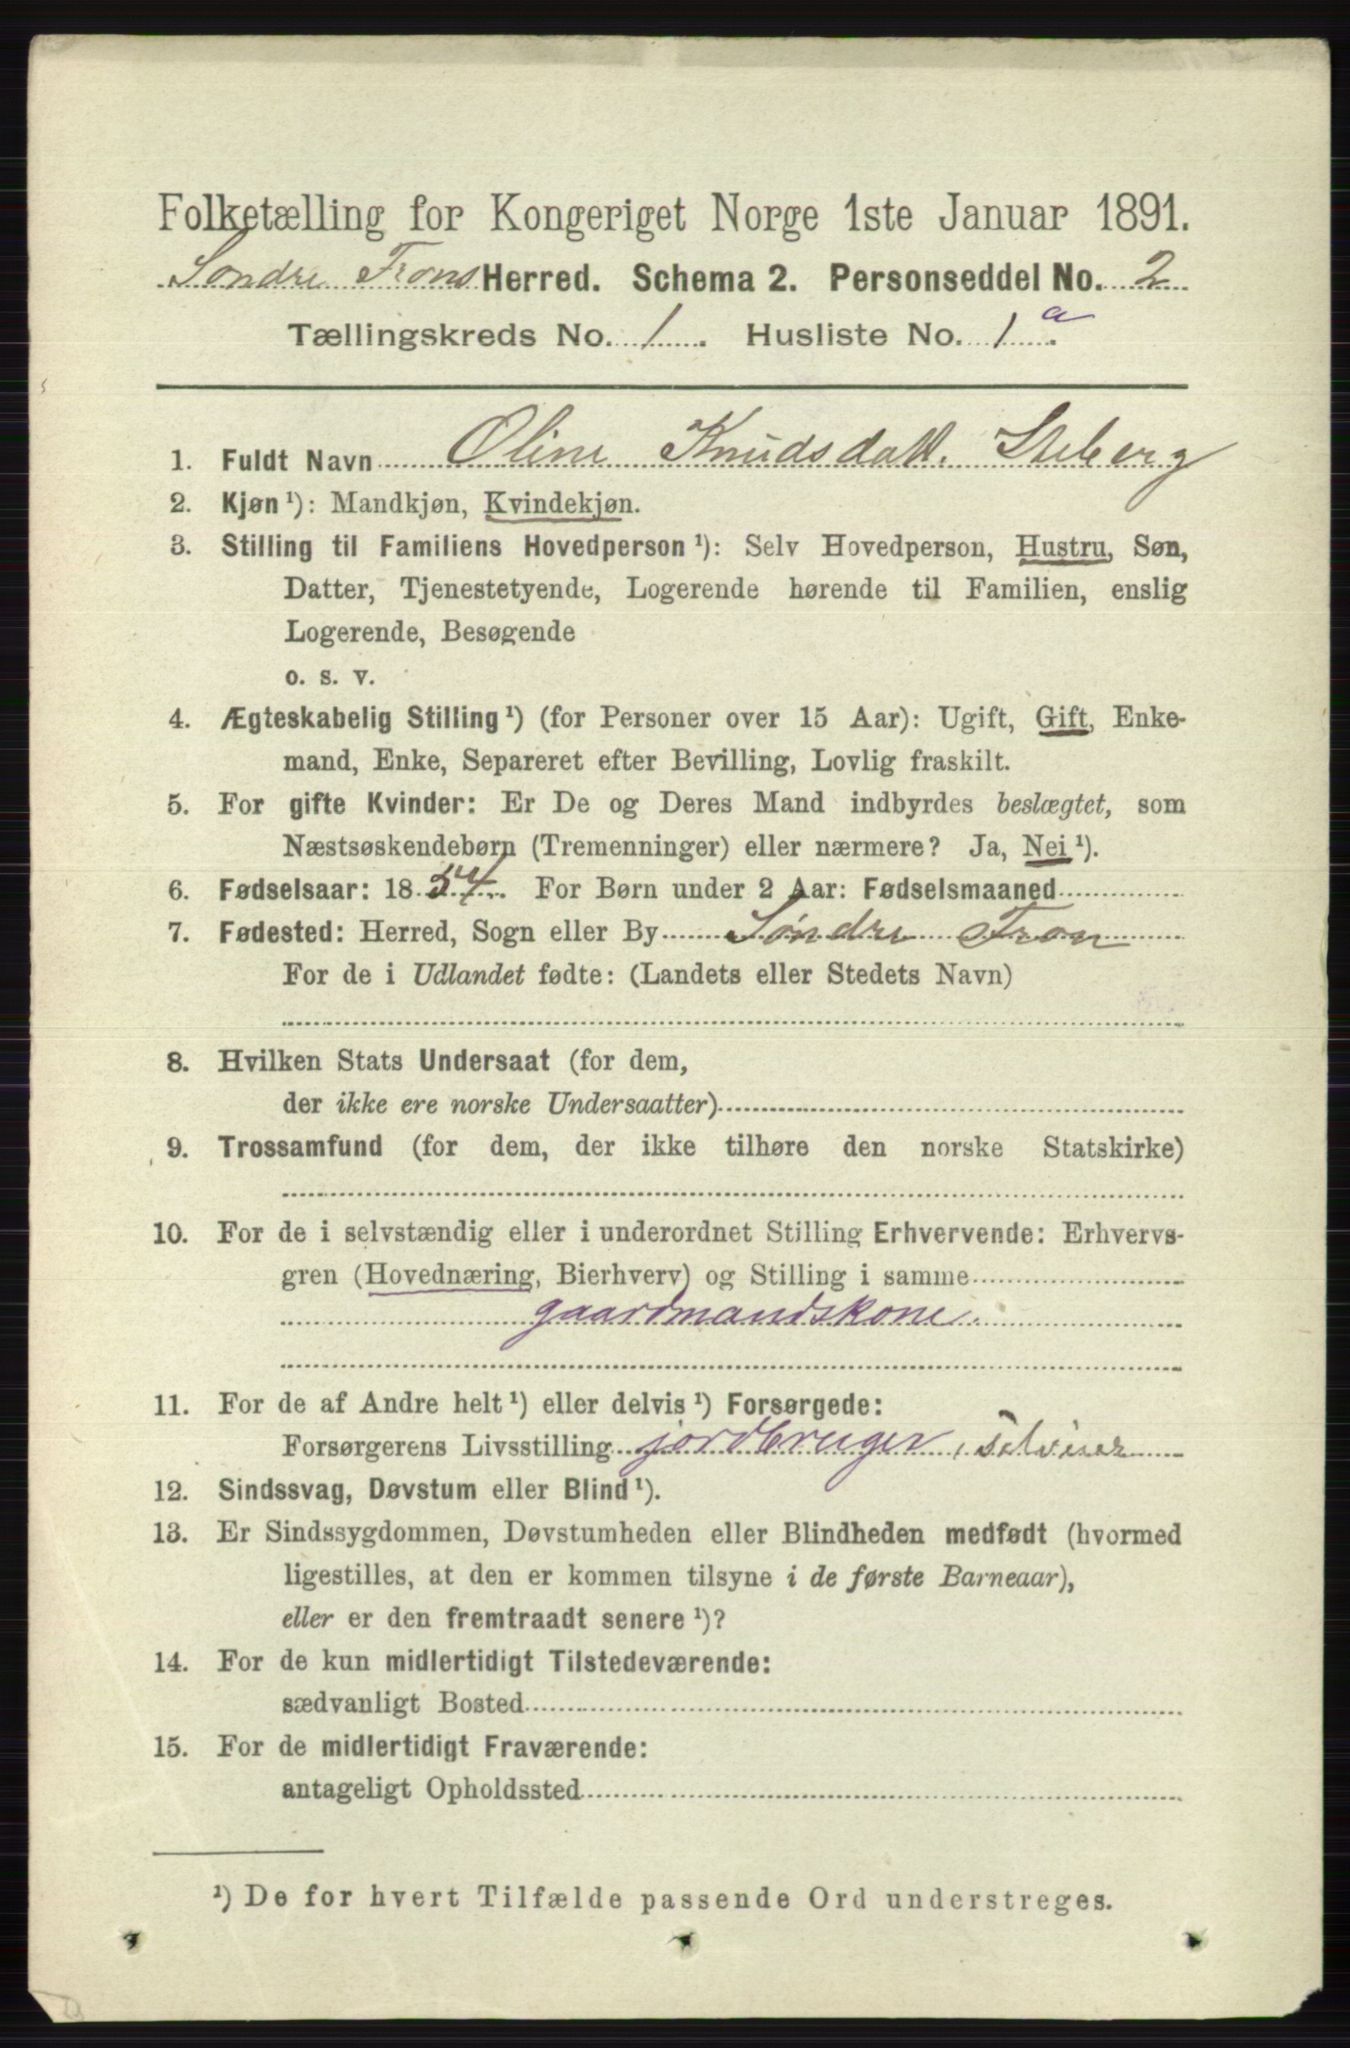 Folketælling for Kongeriget Norge 1ste Januar 1891.
Søndre Frons Herred. Schema 2. Personseddel No. 2
Tællingskreds No. 1. Husliste No. 1 a
1. Fuldt Navn Oline Knudsdatt. Steberg
2. Kjøn ¹): Mandkjøn, Kvindekjøn.
3. Stilling til Familiens Hovedperson ¹): Selv Hovedperson, Hustru, Søn,
Datter, Tjenestetyende, Logerende hørende til Familien, enslig
Logerende, Besøgende
o. s. v.
4. Ægteskabelig Stilling ¹) (for Personer over 15 Aar): Ugift, Gift, Enke-
mand, Enke, Separeret efter Bevilling, Lovlig fraskilt.
5. For gifte Kvinder: Er De og Deres Mand indbyrdes beslægtet, som
Næstsøskendebørn (Tremenninger) eller nærmere? Ja, Nei ¹).
6. Fødselsaar: 1854. For Børn under 2 Aar: Fødselsmaaned
7. Fødested: Herred, Sogn eller By Søndre Fron
For de i Udlandet fødte: (Landets eller Stedets Navn)
8. Hvilken Stats Undersaat (for dem,
der ikke ere norske Undersaatter)
9. Trossamfund (for dem, der ikke tilhøre den norske Statskirke)
10. For de i selvstændig eller i underordnet Stilling Erhvervende: Erhvervs-
gren (Hovednæring, Bierhverv) og Stilling i samme
gaardmandskone.
11. For de af Andre helt ¹) eller delvis ¹) Forsørgede:
Forsørgerens Livsstilling jordbruger, selveier
12. Sindssvag, Døvstum eller Blind ¹).
13. Er Sindssygdommen, Døvstumheden eller Blindheden medfødt (hvormed
ligestilles, at den er kommen tilsyne i de første Barneaar),
eller er den fremtraadt senere ¹)?
14. For de kun midlertidigt Tilstedeværende:
sædvanligt Bosted
15. For de midlertidigt Fraværende:
antageligt Opholdssted
¹) De for hvert Tilfælde passende Ord understreges.